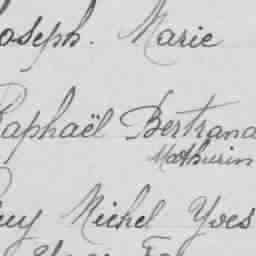 Joseph. Marie
Raphaël Bertrand
Mathurin
Guy Michel Yves